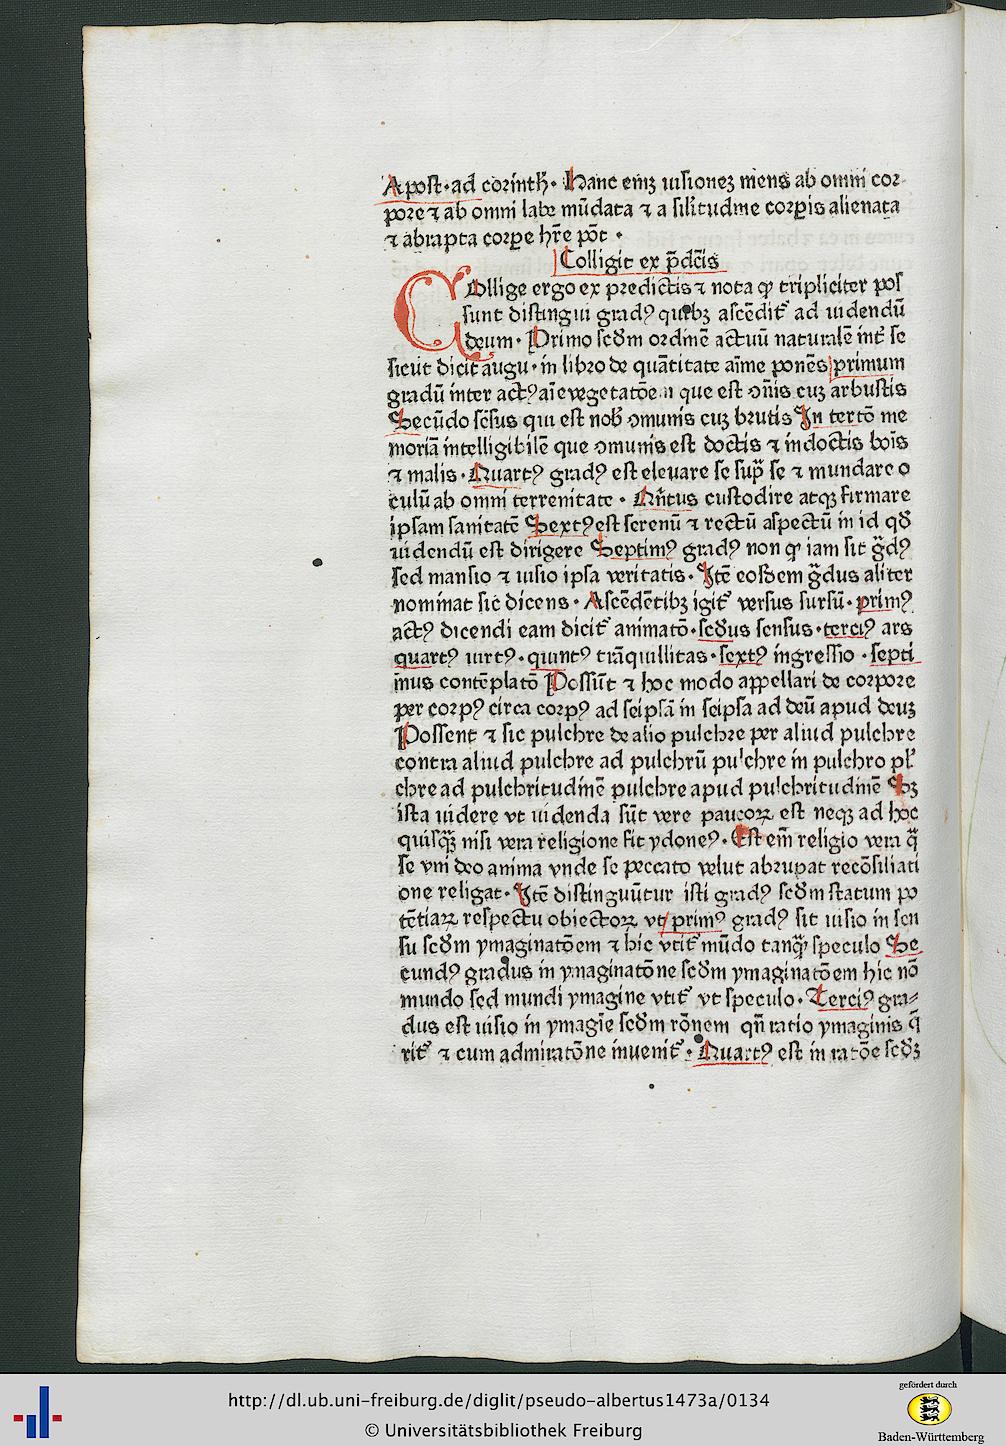 Apost·ad corinth̄· Hanc enīꝫ uisioneꝫ mens ab omni cor-
pore ⁊ ab omni labe mūdata ⁊ a silitudine corꝑis alienata
⁊ abrapta corꝑe hr̄e pōt ·
Colligit ex p̄dc̄is
COllige ergo ex predictis ⁊ nota ꝙ tripliciter pos
sunt distingui gradꝰ quibꝫ ascēdit᷑ ad uidendū
deum· Primo scd̄m ordinē actuū naturalē int᷑ se
sicut dicit augu· in libro de quātitate aīme ponēs primum
gradū inter actꝰ aīe vegetatōe in que est ꝯn̄is cuꝫ arbustis
Secūdo sēsus qui est nob̄ ꝯmunis cuꝫ brutis In tertō me
moriā intelligibilē que ꝯmunis est doctis ⁊ indoctis boīs
⁊ malis· Quartꝰ gradꝰ est eleuare se sup̄ se ⁊ mundare o
culū ab omni terrenitate · Qn̄tus custodire atqꝫ firmare
ipsam sanitatē Sextꝰ est serenū ⁊ rectū aspectū in id qd̄
uidendū est dirigere Septimꝰ gradꝰ non ꝙ iam sit gᷓdꝰ
sed mansio ⁊ uisio ipsa veritatis· Itē eosdem gᷓdus aliter
nominat sic dicens · Ascēdētibꝫ igit᷑ versus sursū· primꝰ
actꝰ dicendi eam dicit᷑ animatō· scd̄us sensus· terciꝰ ars
quartꝰ uirtꝰ· quintꝰ trāquillitas· sextꝰ ingressio · septi
mus contēplatō Possūt ⁊ hoc modo appellari de corpore
per corpꝰ circa corpꝰ ad seipsā in seipsa ad deū apud deuꝫ
Possent ⁊ sic pulchre de alio pulchre per aliud pulchre
contra aliud pulchre ad pulchrū pulchre in pulchro pl᷑
chre ad pulchritudinē pulchre apud pulchritudinē Sꝫ
ista uidere vt uidenda sūt vere paucoꝝ est neqꝫ ad hoc
quisqᷓꝫ nisi vera religione fit ydoneꝰ· Est em̄ religio vera qᷓ
se vni deo anima vnde se peccato velut abrupat recōsiliati
one religat· Itē distinguūtur isti gradꝰ scd̄m statum po
tētiaꝝ respectu obiectoꝝ vt primꝰ gradꝰ sit uisio in sen
su scd̄m ymaginatōem ⁊ hic vtit᷑ mūdo tanqᷓ speculo Se
cundꝰ gradus in ymaginatōne scd̄m ymaginatōem hic nō
mundo sed mundi ymagine vtit᷑ vt speculo· Terciꝰ gra⸗
dus est uisio in ymagīe scd̄m rōnem qn̄ ratio ymaginis q̄
rit᷑ ⁊ cum admiratōne inuenit᷑· Quartꝰ est in ratōe scd̄ꝫ
http://dl.ub.uni-freiburg.de/diglit/pseudo-albertus1473a/0134
© Universitätsbibliothek Freiburg
gefördert durch
Baden-Württemberg